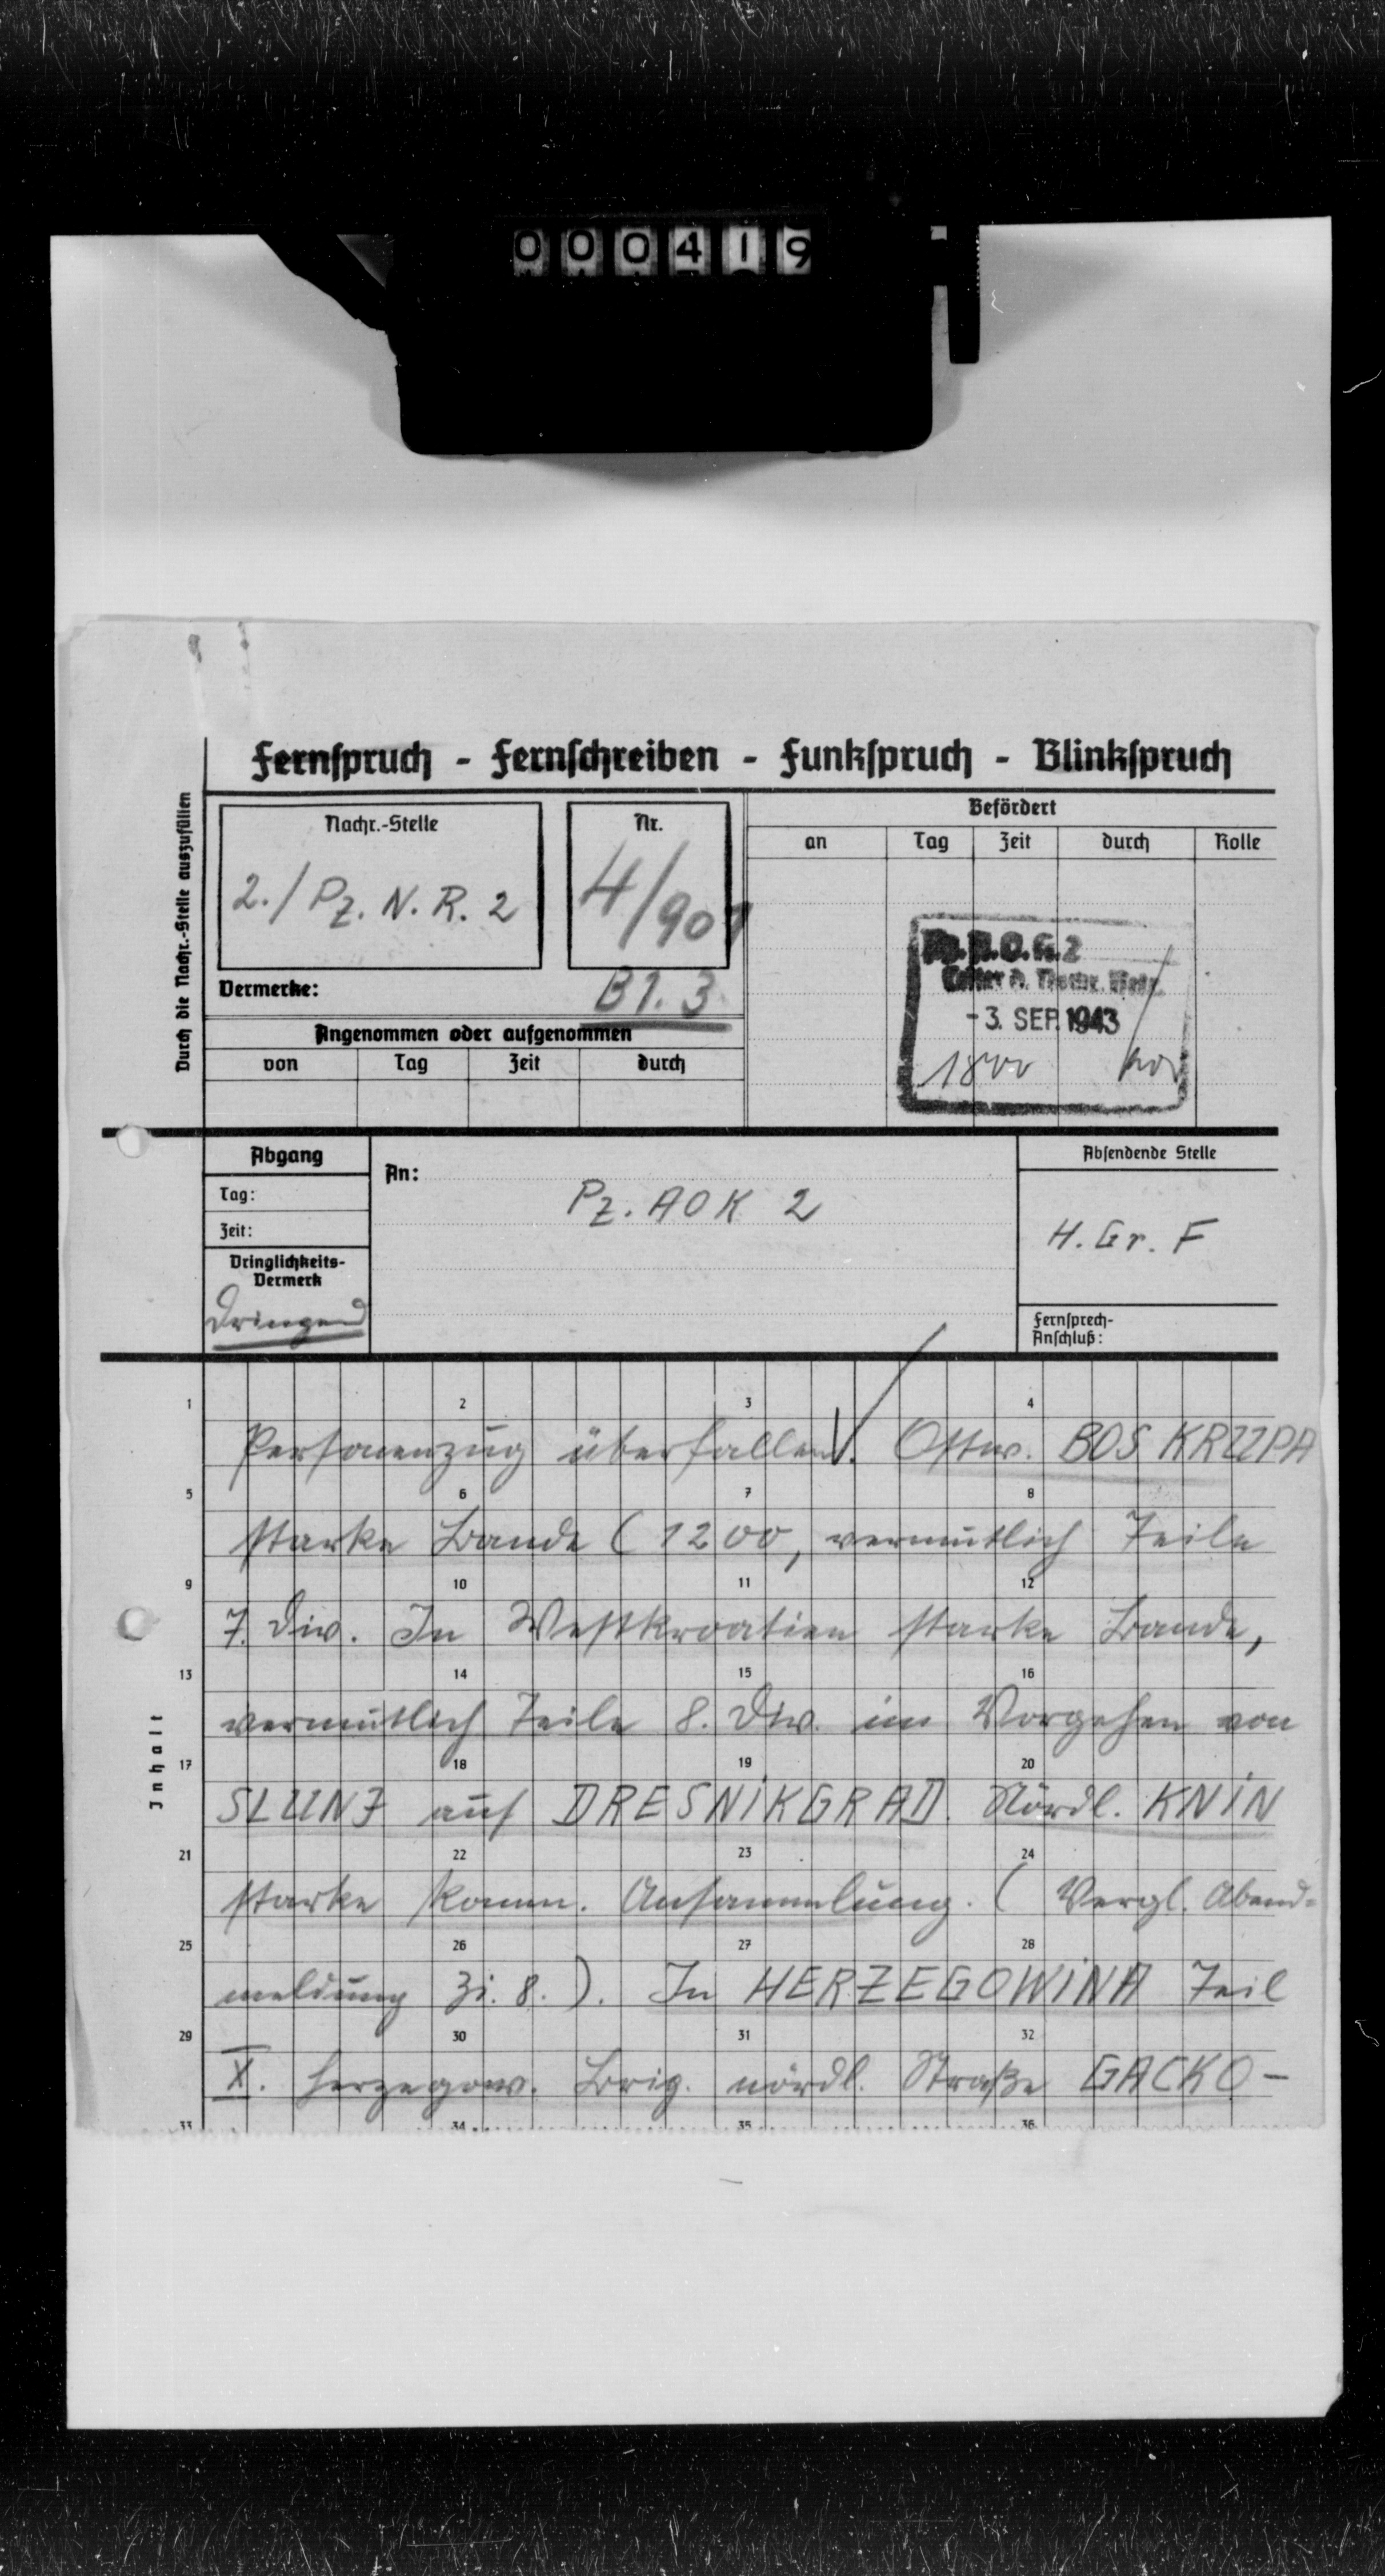 000419
Fernspruch - Fernschreiben - Funkspruch - Blinkspruch
Durch die Nachr.-Stelle auszufüllen
Nachr.-Stelle
2./Pz. N. R. 2
Nr.
4/901
Vermerke:
Bl. 3
Angenommen oder aufgenommen
von Tag Zeit durch
Befördert
an Tag Zeit durch Rolle
- 3. SEP. 1943
1800
Abgang
Tag:
Zeit:
Dringlichkeits-
Vermerk
Dringend
An:
Pz. AOK 2
Absendende Stelle
H. Gr. F
Fernsprech-
Anschluß:
Inhalt
1 2 3 4
Personenzug überfallen. Ostw. BOS KRUPA
5 6 7 8
starke Bande (1200, vermutlich Teile
9 10 11 12
7. Div. In Westkroatien starke Bande,
13 14 15 16
vermutlich Teile 8. Div. im Vorgehen von
17 18 19 20
SLUNJ auf DRESNIKGRAD. Nördl. KNIN
21 22 23 24
starke komm. Ansammlung. (Vergl. Abend-
25 26 27 28
meldung Zi. 8.). In HERZEGOWINA Teil
29 30 31 32
X. herzegow. Brig. nördl. Straße GACKO -
33 34 35 36